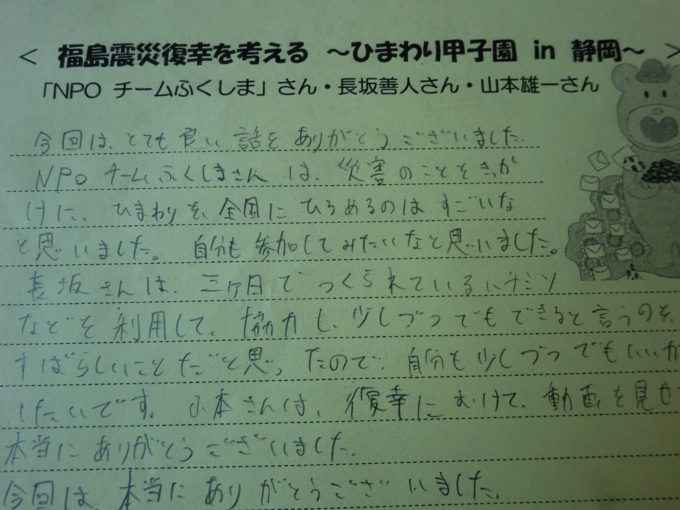 ＜ 福島震災復幸を考える ～ひまわり甲子園 in 静岡～ ＞
「NPO チームふくしま」さん・長坂善人さん・山本雄一さん
今回は、とても良い話をありがとうございました
NPOチームふくしまさんは、災害のことをきっか
けに、ひまわりを全国にひろめるのはすごいな
と思いました。自分も参加してみたいなと思いました。
長坂さんは、三ヶ月でつくられている
などを利用して、協力し、少しづつでもできると言うのを、
すばらしいことだと思ったので、自分も少しづつでもいいか
したいです。山本さんは、復幸にむけて、動画を見せ
本当にありがとうございました。
今回は、本当にありがとうございました。